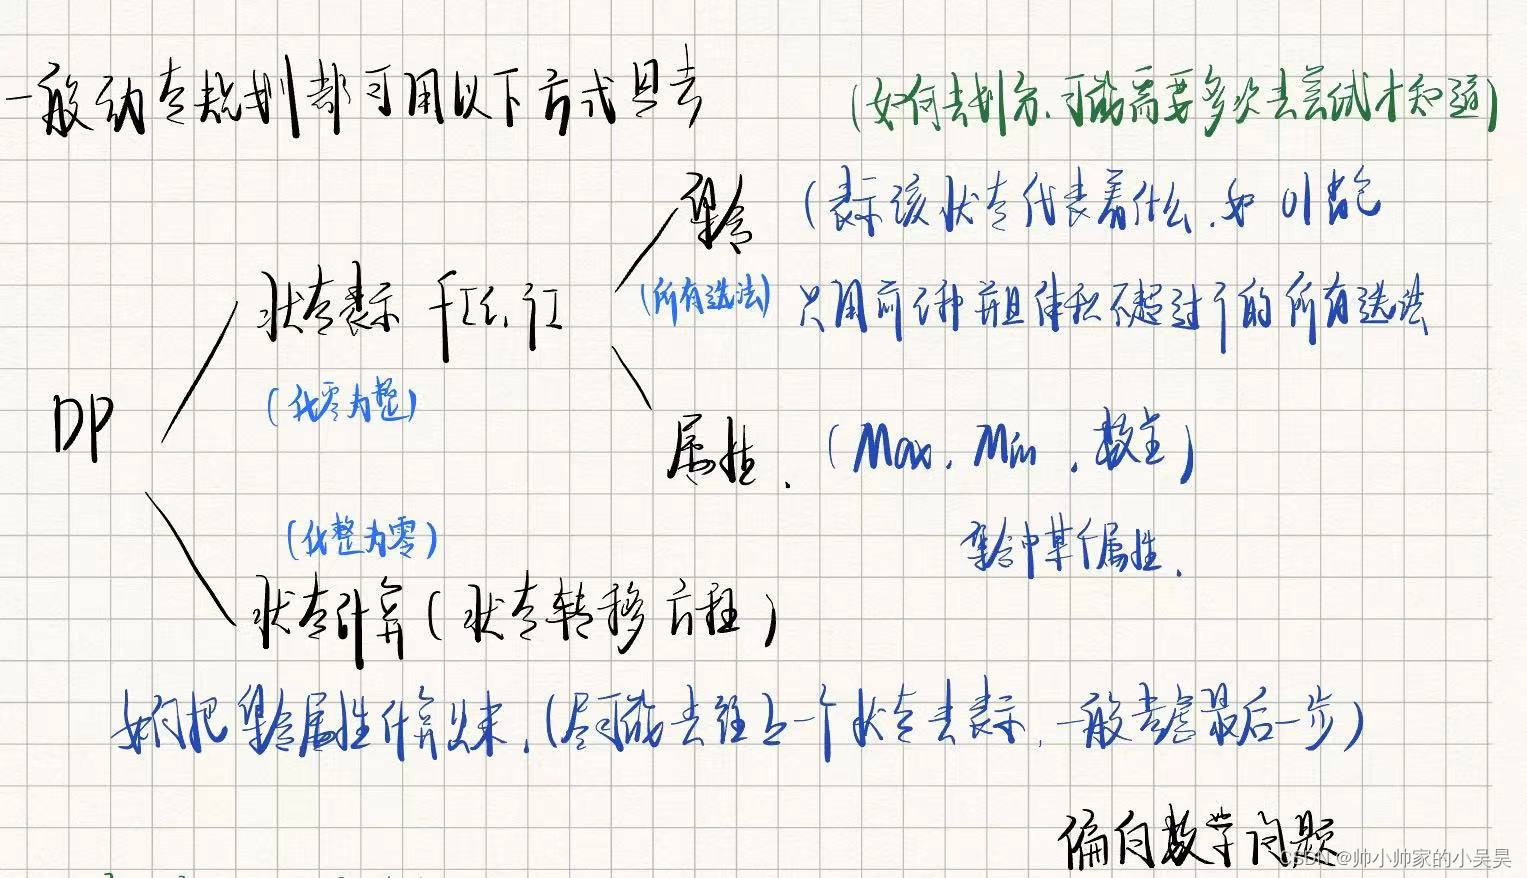 一般动态规划都可用以下方式思考
(如何去划分、可能需要多次去尝试才知道)
集合 (表示该状态代表着什么,如 01背包
状态表示 f[i,j] (所有选法) 只用前i种并且体积不超过j的所有选法
(化零为整)
DP
属性. (Max, Min, 数量)
(化整为零)
集合中某个属性.
状态计算(状态转移方程)
如何把集合属性计算出来.(尽可能去往上一个状态去表示,一般考虑最后一步)
偏向数学问题
CSDN @帅小帅家的小吴昊